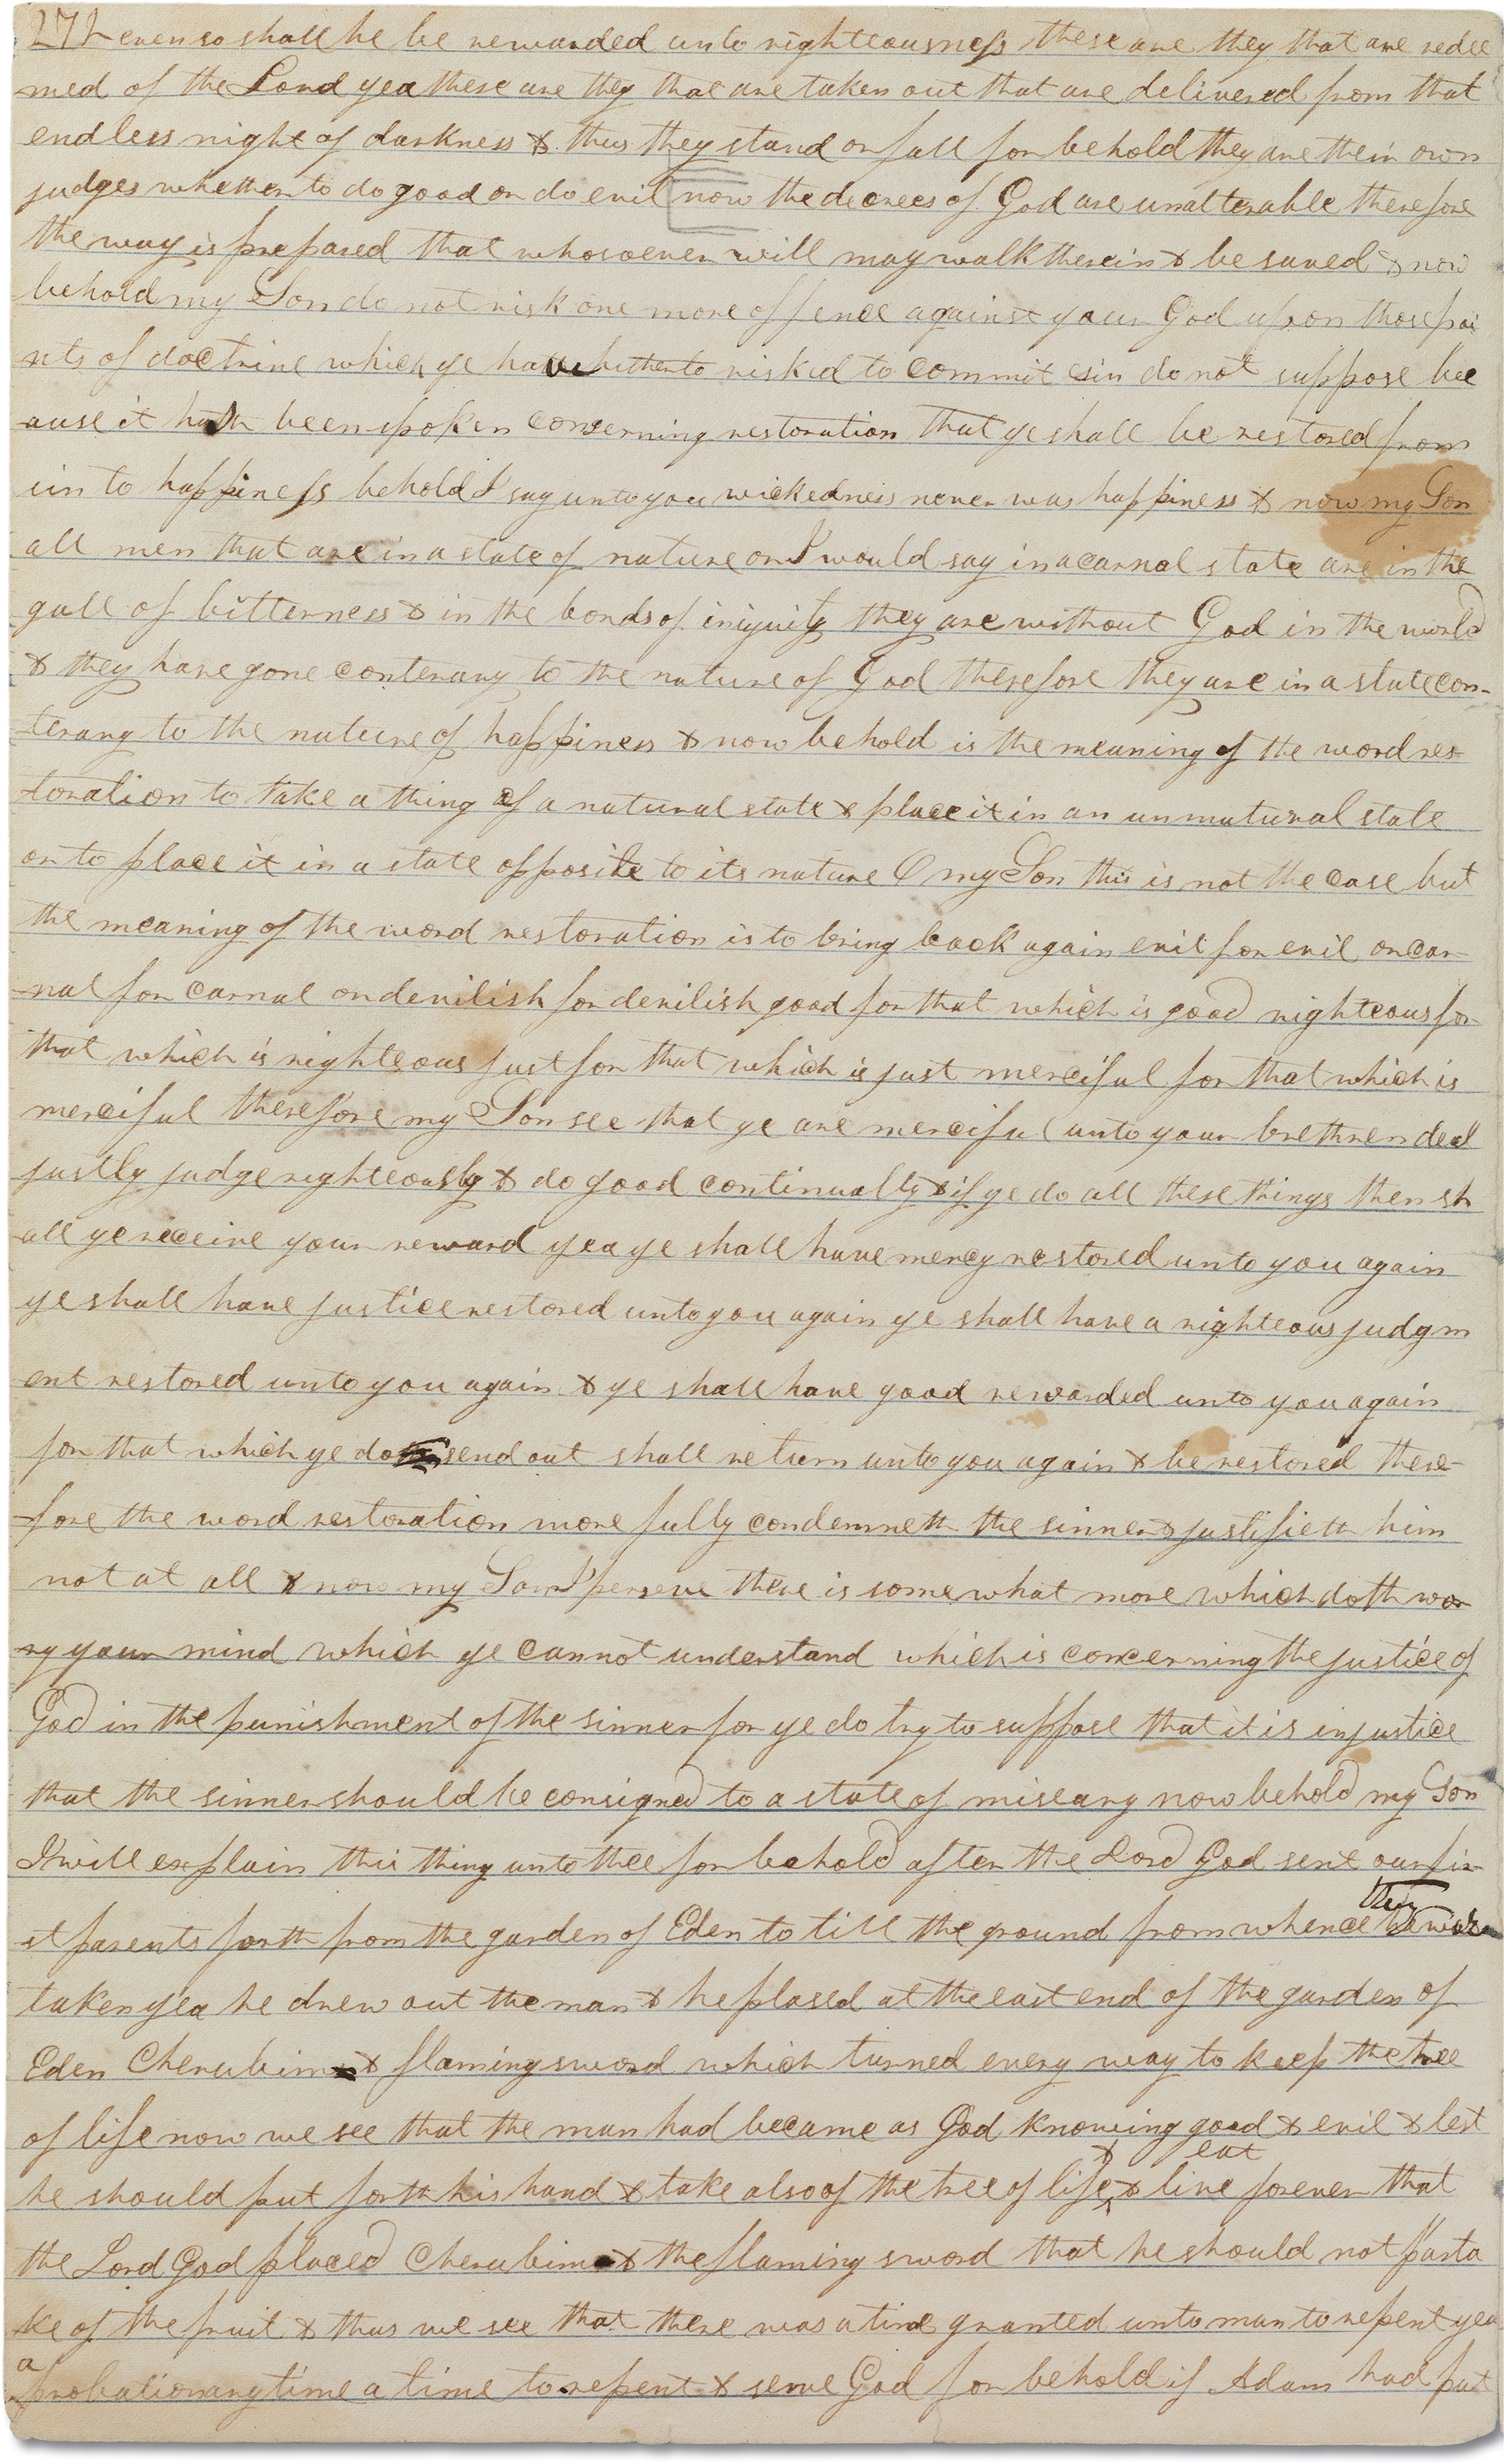 272 even so shall he be rewarded unto righteousness these are they that are redee
med of the Lord yea these are they that are taken out that are delivered from that
endless night of darkness & thus they stand or fall for behold they are their own
judges whether to do good or do evil now the decrees of God are unalterable therefore
the way is prepared that whosoever will may walk therein & be saved & now
behold my Son do not risk one more offence against your God upon those poi
nts of doctrine which ye have hitherto risked to commit sin do not suppose bec
ause it hath been spoken conserning restoration that ye shall be restored from
sin to happiness behold I say unto you wickedness never was happiness & now my Son
all men that are in a state of nature or I would say in a carnal state are in the
gall of bitterness & in the bonds of iniquity they are without God in the world
& they have gone conterary to the nature of God therefore they are in a state con-
terary to the nature of happiness & now behold is the meaning of the word res-
toration to take a thing of a natural state & place it in an unnatural state
or to place it in a state opposite to its nature O my Son this is not the case but
the meaning of the word restoration is to bring back again evil for evil or car-
nal for carnal or devilish for devilish good for that which is good righteous for
that which is righteous just for that which is just merciful for that which is
merciful therefore my Son see that ye are merciful unto your brethren deal
justly judge righteously & do good continually & if ye do all these things then sh
all ye receive your reward yea ye shall have mercy restored unto you again
ye shall have justice restored unto you again ye shall have a righteous judgm
ent restored unto you again & ye shall have good rewarded unto you again
for that which ye do send out shall return unto you again & be restored there-
fore the word restoration more fully condemneth the sinner & justifieth him
not at all & now my Son I perseve there is somewhat more which doth wor
ry your mind which ye cannot understand which is concerning the justice of
God in the punishment of the sinner for ye do try to suppose that it is injustice
that the sinner should be consigned to a state of miseary now behold my Son
I will explain this thing unto thee for behold after the Lord God sent our fir
st parents forth from the garden of Eden to till the ground from whence they were
taken yea he drew out the man & he plased at the east end of the garden of
Eden Cherubim & flaming sword which turned every way to keep the tree
of life now we see that the man had became as God knowing good & evil & lest
& eat
he should put forth his hand & take also of the tree of life & live forever that
the Lord God placed Cherubim & the flaming sword that he should not parta
ke of the fruit & thus we see that there was a time granted unto man to repent yea
a probationary time a time to repent & serve God for behold if Adam had put